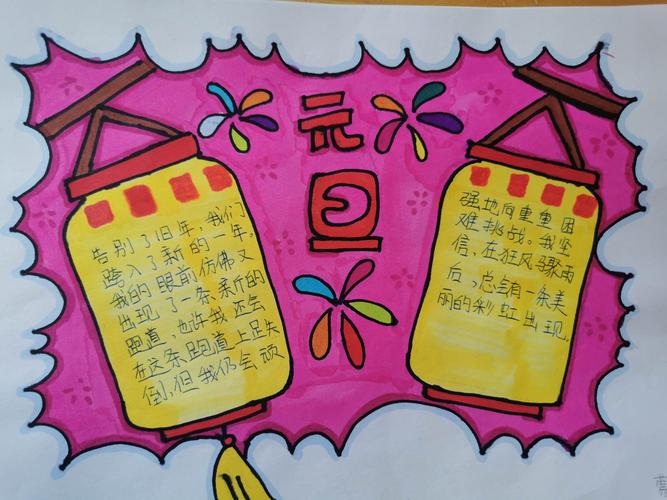 元
旦
告别了旧年，我们
跨入了新的一年。
我的眼前仿佛又
出现了一条崭新的
跑道，也许我还会
在这条跑道上足失
倒，但我仍会顽
强地向重重困
难挑战。我坚
信，在狂风骤雨
后，总会有一条美
丽的彩虹出现。